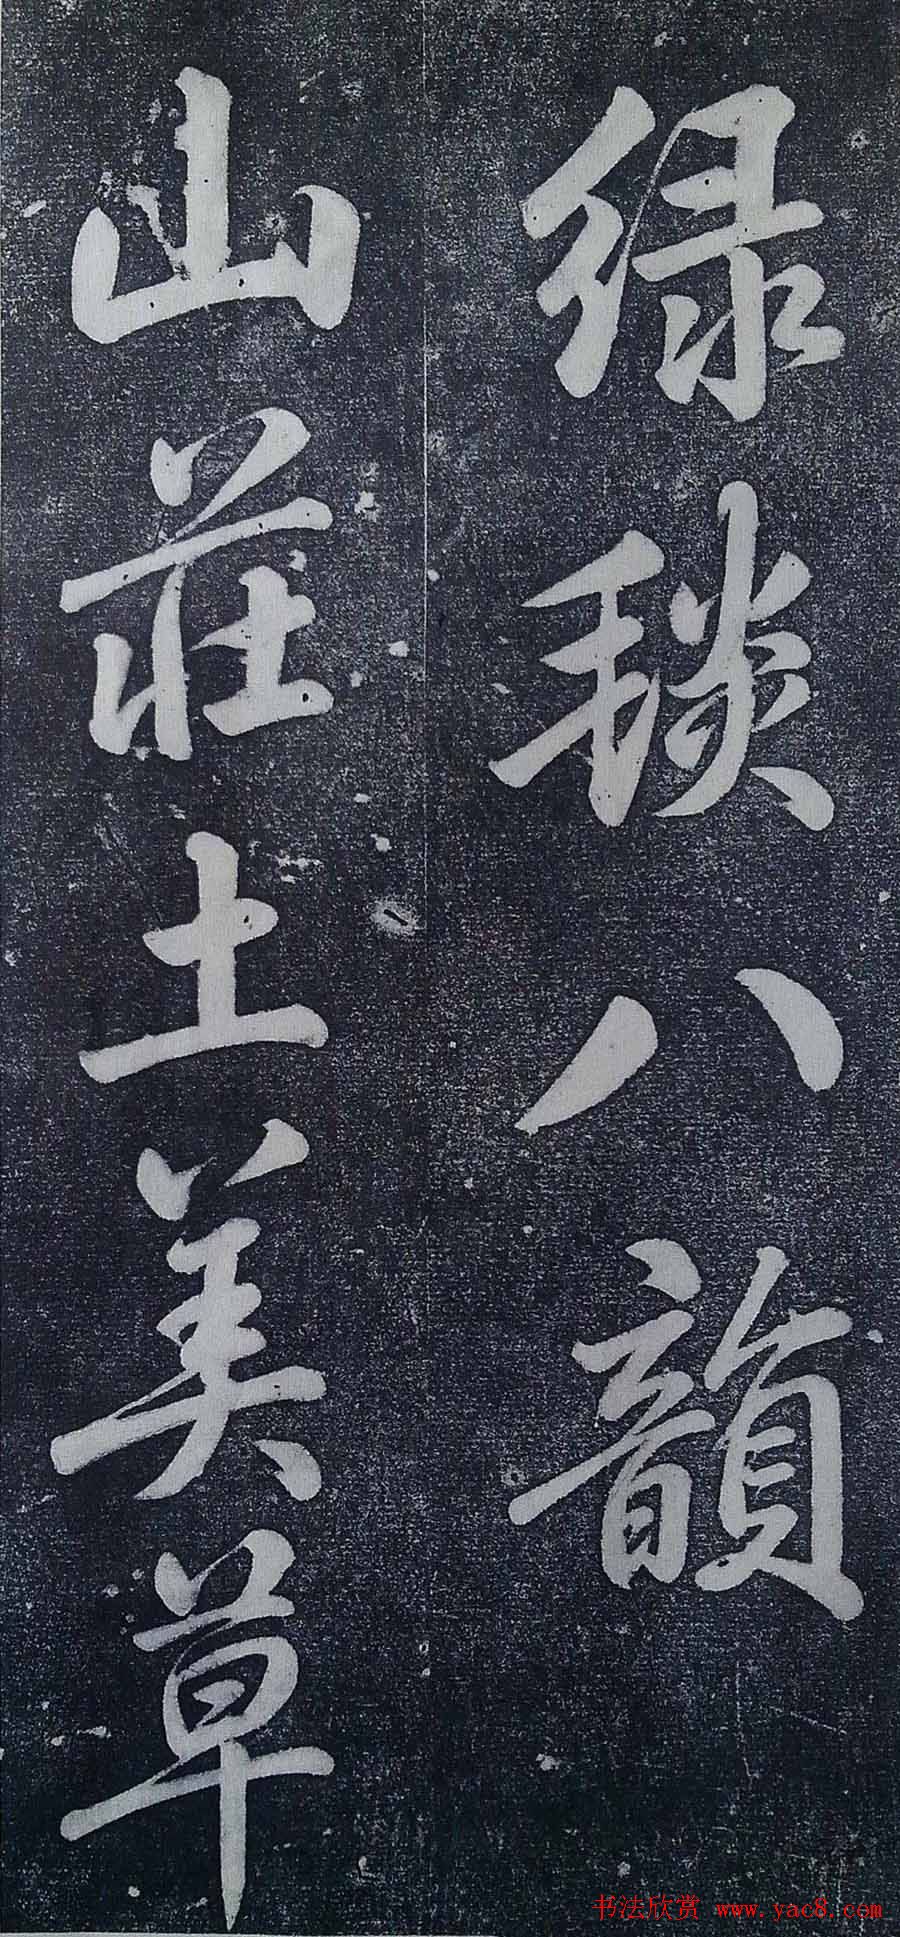 绿毯八韻
山莊土美草
书法欣赏 www.yac8.com